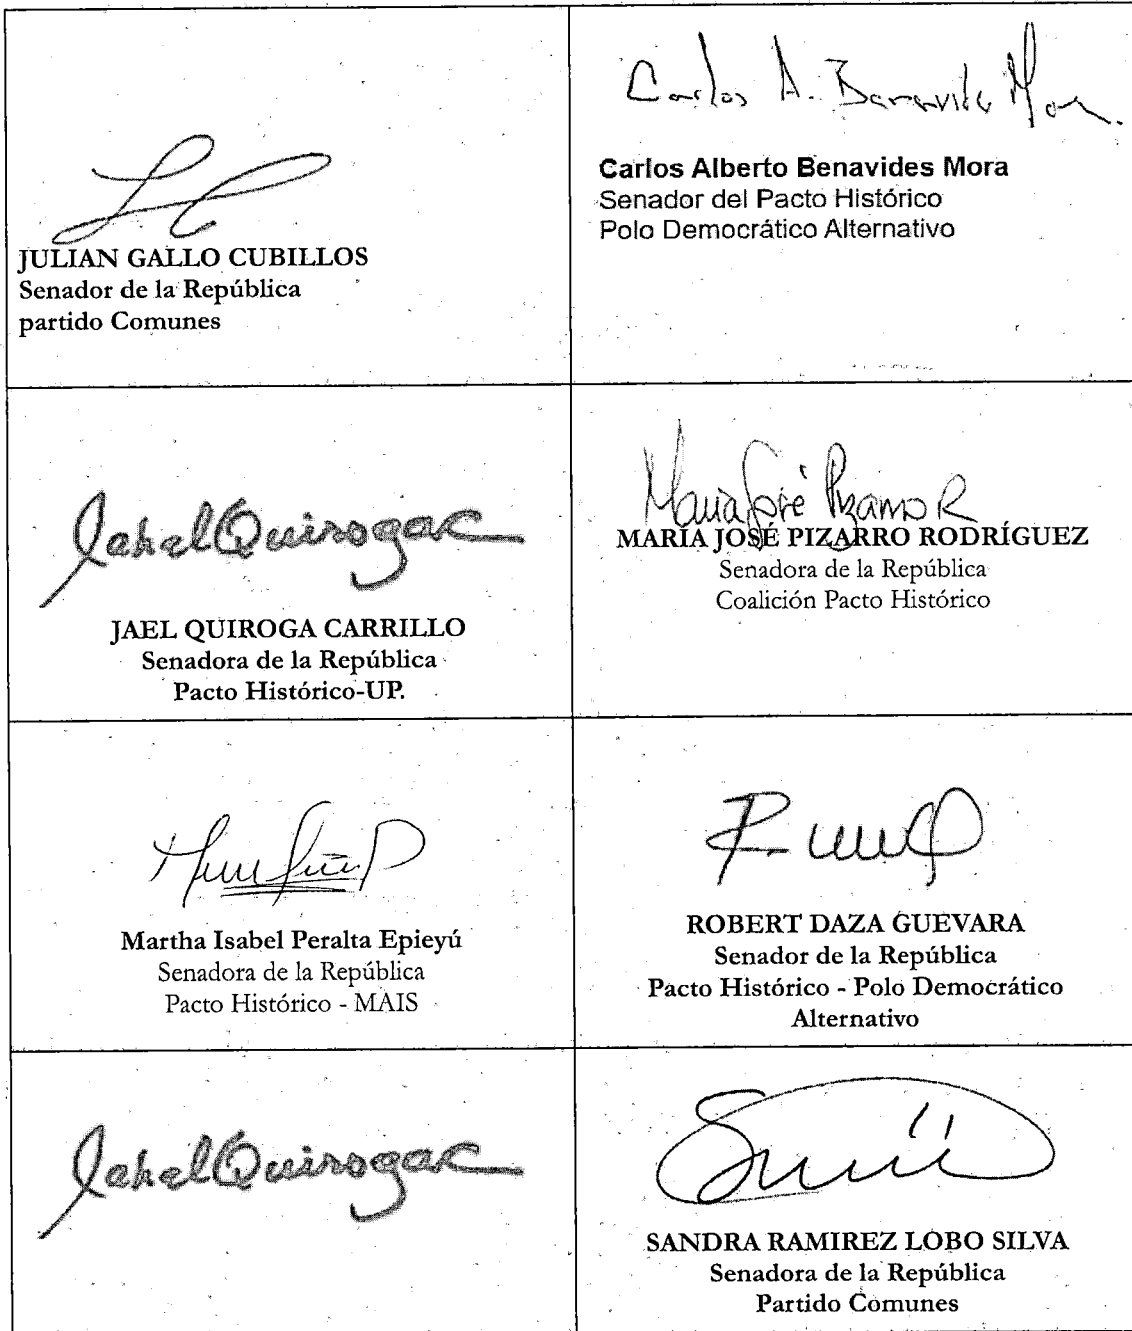 JULIAN GALLO CUBILLOS
Senador de la República
partido Comunes
Carlos A. Benavides Mora
Carlos Alberto Benavides Mora
Senador del Pacto Histórico
Polo Democrático Alternativo
Jahel Quiroga C
JAEL QUIROGA CARRILLO
Senadora de la República
Pacto Histórico-UP.
María José Pizarro R
MARÍA JOSÉ PIZARRO RODRÍGUEZ
Senadora de la República
Coalición Pacto Histórico
Martha Isabel Peralta Epieyú
Senadora de la República
Pacto Histórico - MAIS
ROBERT DAZA GUEVARA
Senador de la República
Pacto Histórico - Polo Democrático
Alternativo
Jahel Quiroga C
SANDRA RAMIREZ LOBO SILVA
Senadora de la República
Partido Comunes